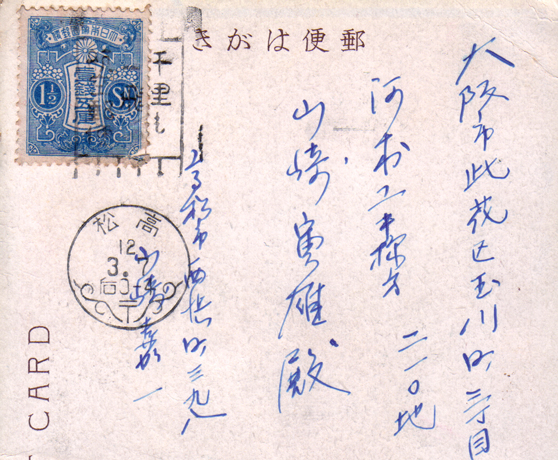 郵便はがき
大阪市此花区玉川町二丁目
河村工業様方
二一〇地
山崎寅雄殿
高松市西浜町三九八
山崎嘉一
千里も
大日本帝国郵便
1½ Sn
高松
12.
3.7
后3-4
CARD